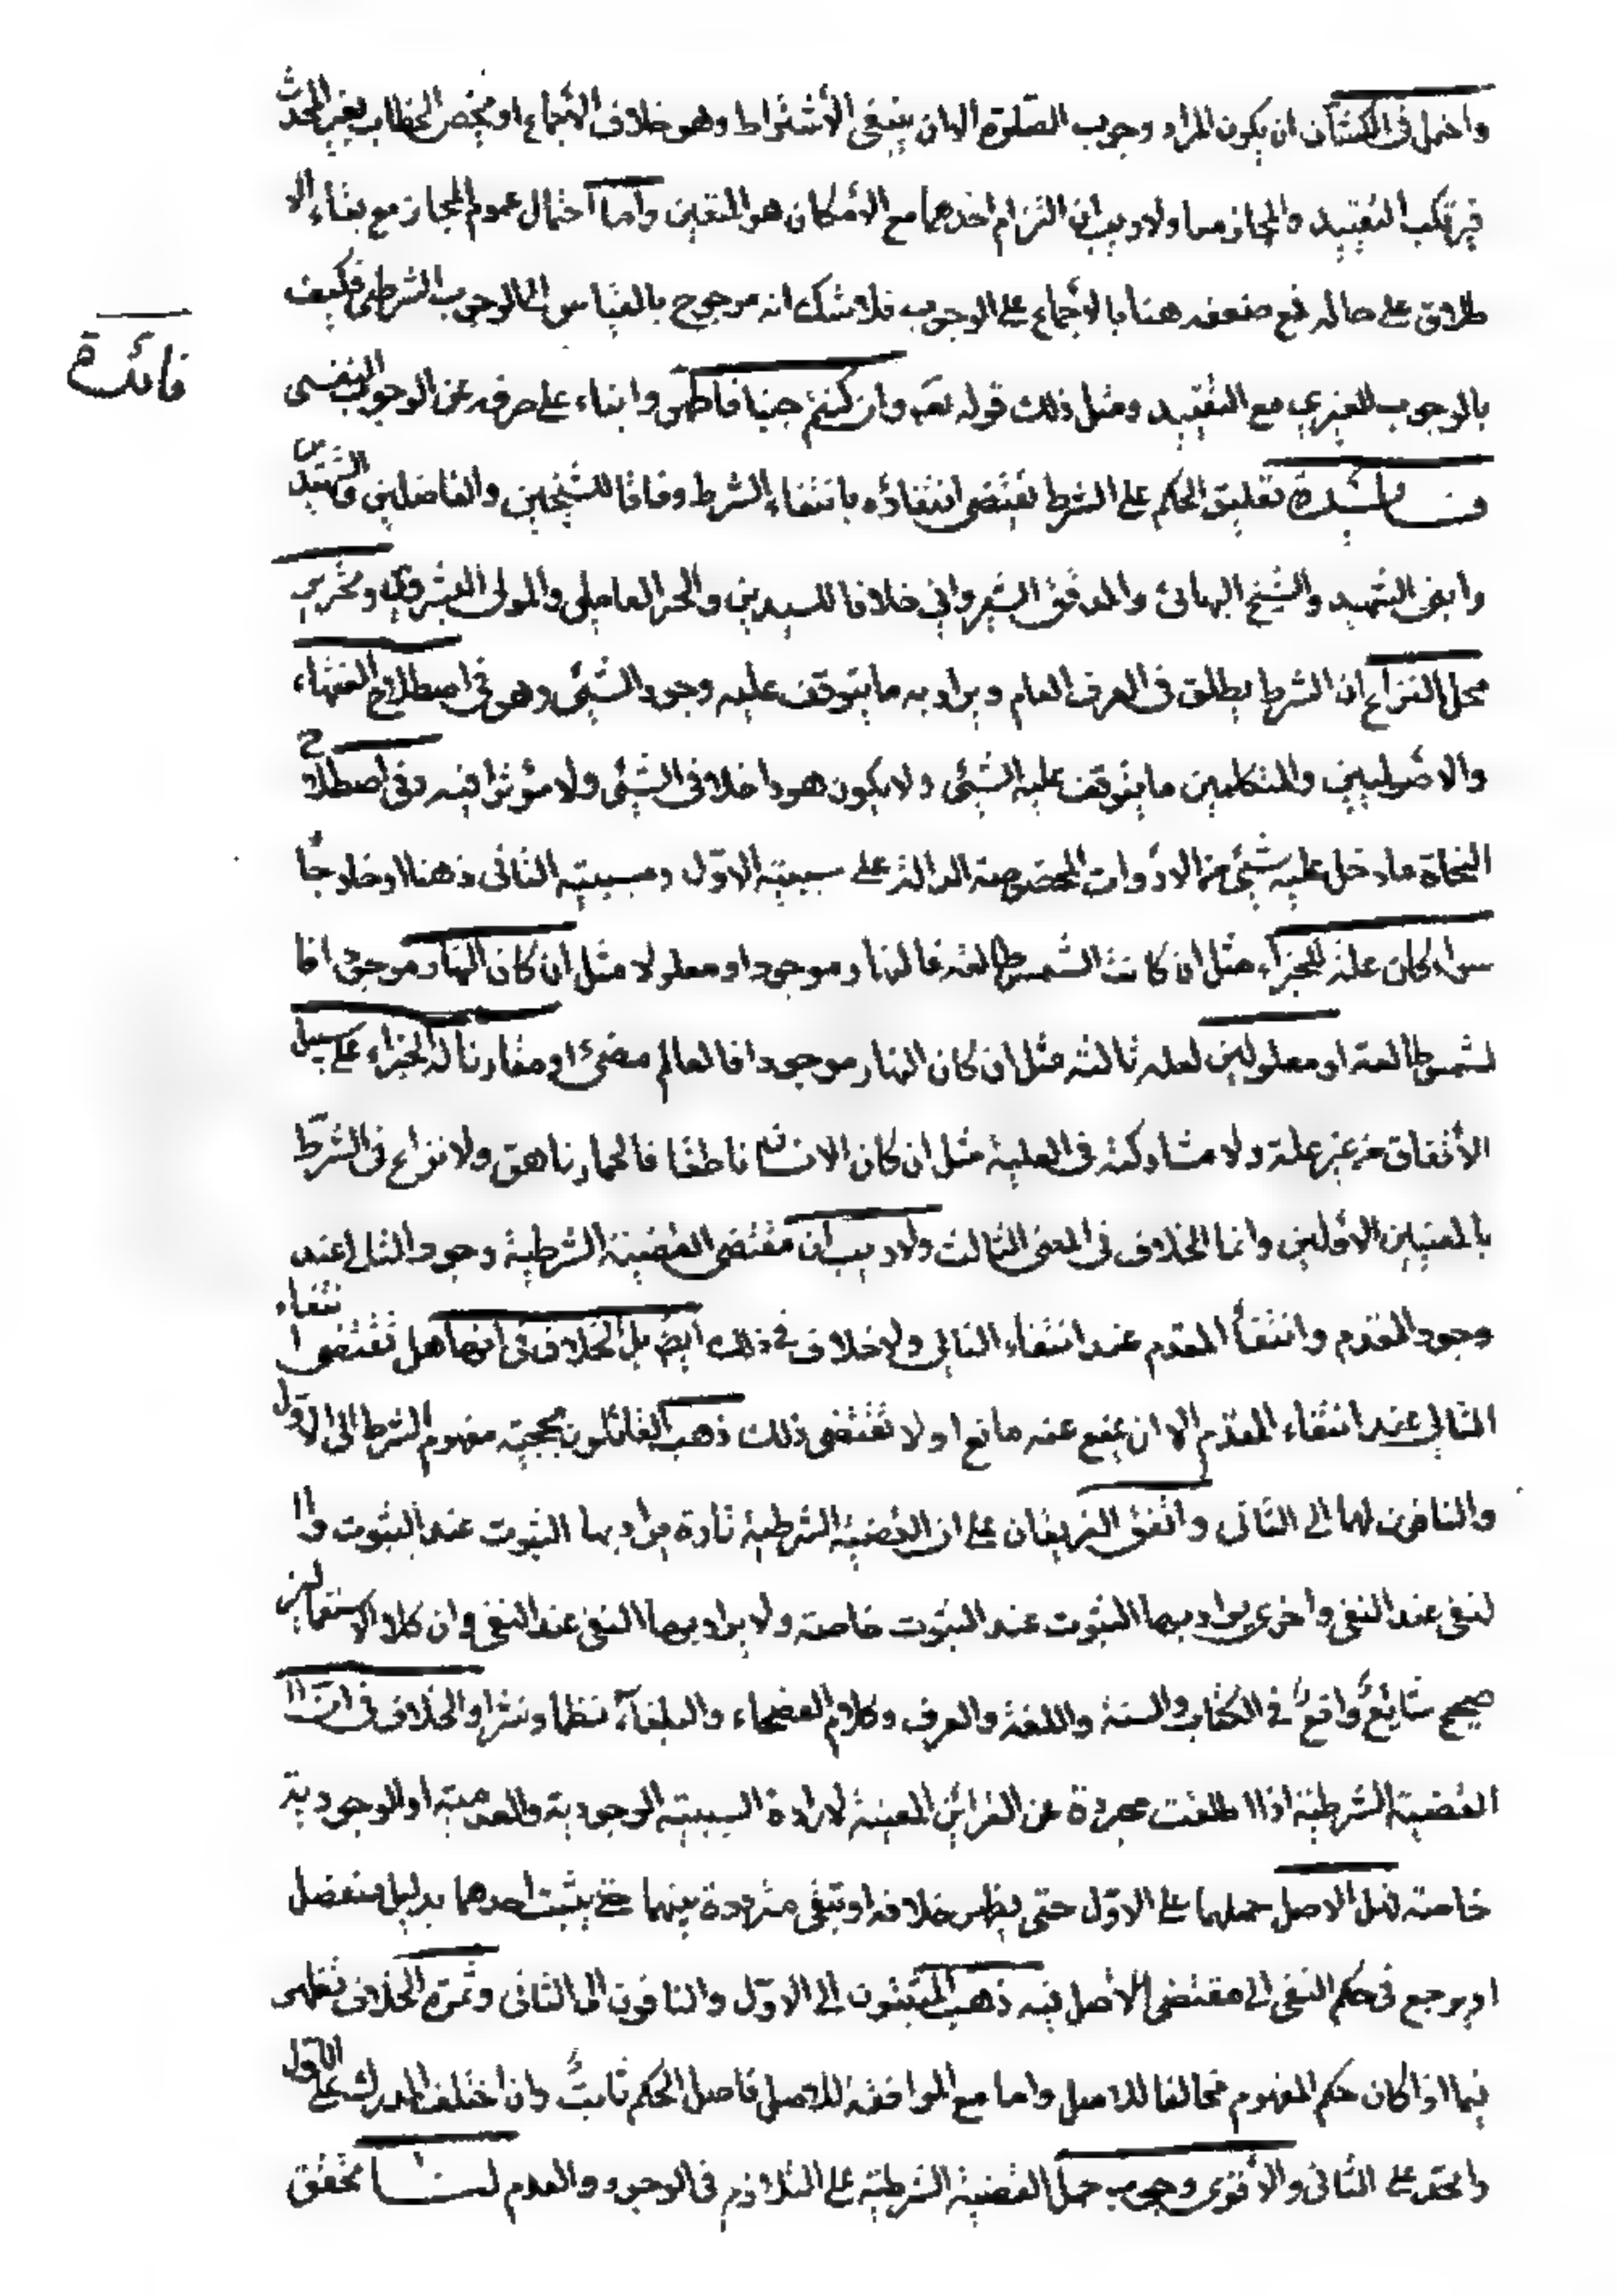 واحتمل في الكشاف ان يكون المراد وجوب الصلوة الا ان ينبغي الأشتراط وهو خلاف الأجماع او يخص الخطاب بغير المحدث
فيرتكب التقييد والمجاز معا ولا ريب ان التزام احدهما مع الأمكان هو المتعين واما احتمال عموم المجاز مع بقاء الا
طلاق على حاله فمع ضعفه هنا بالأجماع على الوجوب فلا شك انه مرجوح بالقياس الى الوجوب الشرطي فكيف
فائدة
بالوجوب الغيري مع التقييد ومثل ذلك قوله تعه وان كنتم جنبا فاطهروا بناء على صرفه عن الوجوب النفسي
فائدة تعليق الحكم على الشرط يقتضي انتفائه بانتفاء الشرط وفاقا للشيخين والفاضلين والشهيدين
وابني الشهيد والشيخ البهائي والمدقق الشيرواني خلافا للسيدين والحر العاملي والمولى البشروي وتحرير
محل النزاع ان الشرط يطلق في العرف العام ويراد به ما يتوقف عليه وجود الشيئ وهو في اصطلاح الفقهاء
والاصوليين والمتكلمين ما يتوقف عليه الشيئ ولا يكون هو داخلا في الشيئ ولا مؤثرا فيه وفي اصطلاح
النحاة ما دخل عليه شيئ من الأدوات المخصوصة الدالة على سببية الاول ومسببية الثاني ذهنا او خارجا
سواء كان علة للجزاء مثل ان كانت الشمس طالعة فالنهار موجود او معلولا مثل ان كان النهار موجودا فا
لشمس طالعة او معلولين لعلة ثالثة مثل ان كان النهار موجودا فالعالم مضيئ او مقارنا له الجزاء على سبيل
الأتفاق من غير علة ولا مشاركة في العلية مثل ان كان الانسان ناطقا فالحمار ناهق ولا نزاع في الشرط
بالمعنيين الأولين وانما الخلاف في المعنى الثالث ولا ريب ان مقتضى القضية الشرطية وجود التالي عند
وجود المقدم وانتفاء المقدم عند انتفاء التالي ولا خلاف في ذلك ايض بل الخلاف في انها هل تقتضي انتفاء
التالي عند انتفاء المقدم الا ان يمنع عنه مانع او لا تقتضي ذلك ذهب القائلون بحجية مفهوم الشرط الى الاول
والنافون لها الى الثاني واتفق الفريقان على ان القضية الشرطية تارة يراد بها الثبوت عند الثبوت وا
لنفي عند النفي واخرى يراد بها الثبوت عند الثبوت خاصة ولا يراد بها النفي عند النفي وان كلا الاستعمالين
صحيح شايع واقع في الكتاب والسنة واللغة والعرف وكلام الفصحاء والبلغاء نظما ونثرا والخلاف في ان
القضية الشرطية اذا اطلقت مجردة عن القرائن المعينة لارادة السببية الوجودية والعدمية او الوجودية
خاصة فهل الاصل حملها على الاول حتى يظهر خلافه او تبقى مترددة بينهما حتى يثبت احدهما بدليل منفصل
او يرجع في حكم النفي الى مقتضى الأصل فيه ذهب المثبتون الى الاول والنافون الى الثاني وثمرة الخلاف تظهر
فيما اذا كان حكم المفهوم مخالفا للاصل واما مع الموافقة للاصل فاصل الحكم ثابت وان اختلف المدرك على الاول
واتحد على الثاني والأقوى وجوب حمل القضية الشرطية على التلازم في الوجود والعدم لنا تحقق